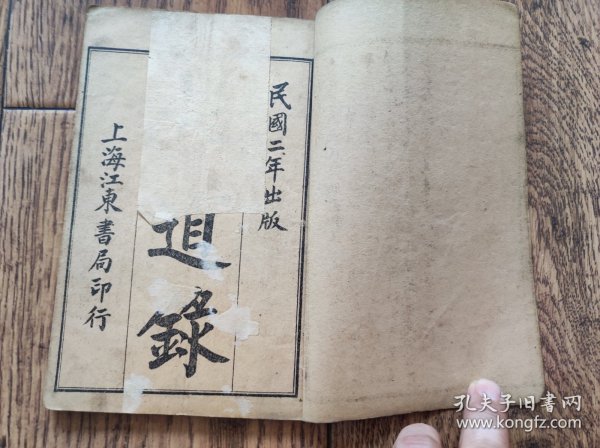 民國二年出版
錄
上海江東書局印行
孔夫子旧书网
www.kongfz.com